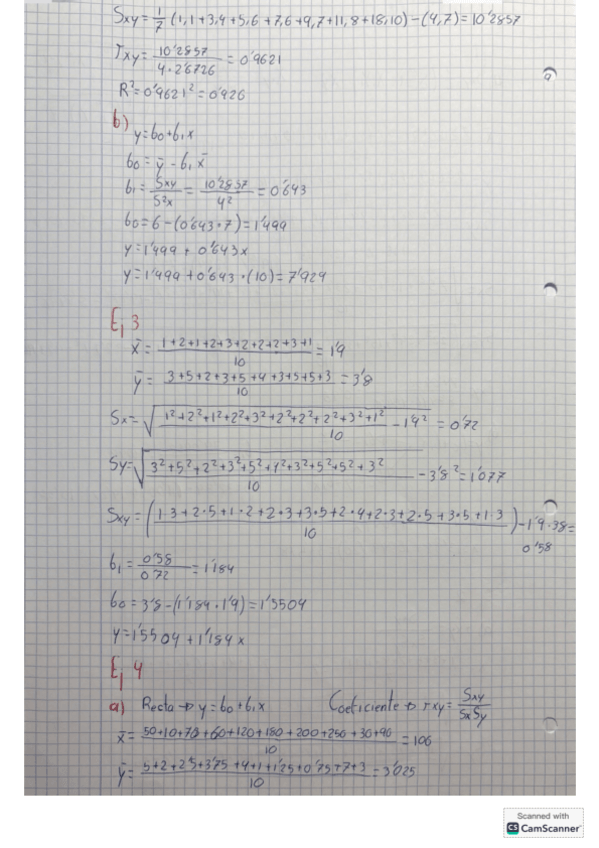 Sxy = 1/7 (1,1+3,4+5,6+7,6+9,7+11,8+18,10) - (4,7) = 10'2857
rxy = 10'2857 / 4·2'6726 = 0'9621
R² = 0'9621² = 0'926
b) y = b0 + b1 x
b0 = ȳ - b1 x̄
b1 = Sxy / S²x = 10'2857 / 4² = 0'643
b0 = 6 - (0'643·7) = 1'499
y = 1'499 + 0'643x
y = 1'499 + 0'643·(10) = 7'929
Ej 3
x̄ = 1+2+1+2+3+2+2+2+3+1 / 10 = 1'9
ȳ = 3+5+2+3+5+4+3+5+5+3 / 10 = 3'8
Sx = √ 1²+2²+1²+2²+3²+2²+2²+2²+3²+1² / 10 - 1'9² = 0'72
Sy = √ 3²+5²+2²+3²+5²+4²+3²+5²+5²+3² / 10 - 3'8² = 1'077
Sxy = ( 1·3+2·5+1·2+2·3+3·5+2·4+2·3+2·5+3·5+1·3 / 10 ) - 1'9·38 =
0'58
b1 = 0'58 / 0'72 = 1'184
b0 = 3'8 - (1'184·1'9) = 1'5504
y = 1'5504 + 1'184x
Ej 4
a) Recta → y = b0 + b1 x Coeficiente → rxy = Sxy / SxSy
x̄ = 50+10+70+60+120+180+200+250+30+90 / 10 = 106
ȳ = 5+2+2'5+3'75+4+1+1'25+0'75+7+3 / 10 = 3'025
Scanned with
CS CamScanner